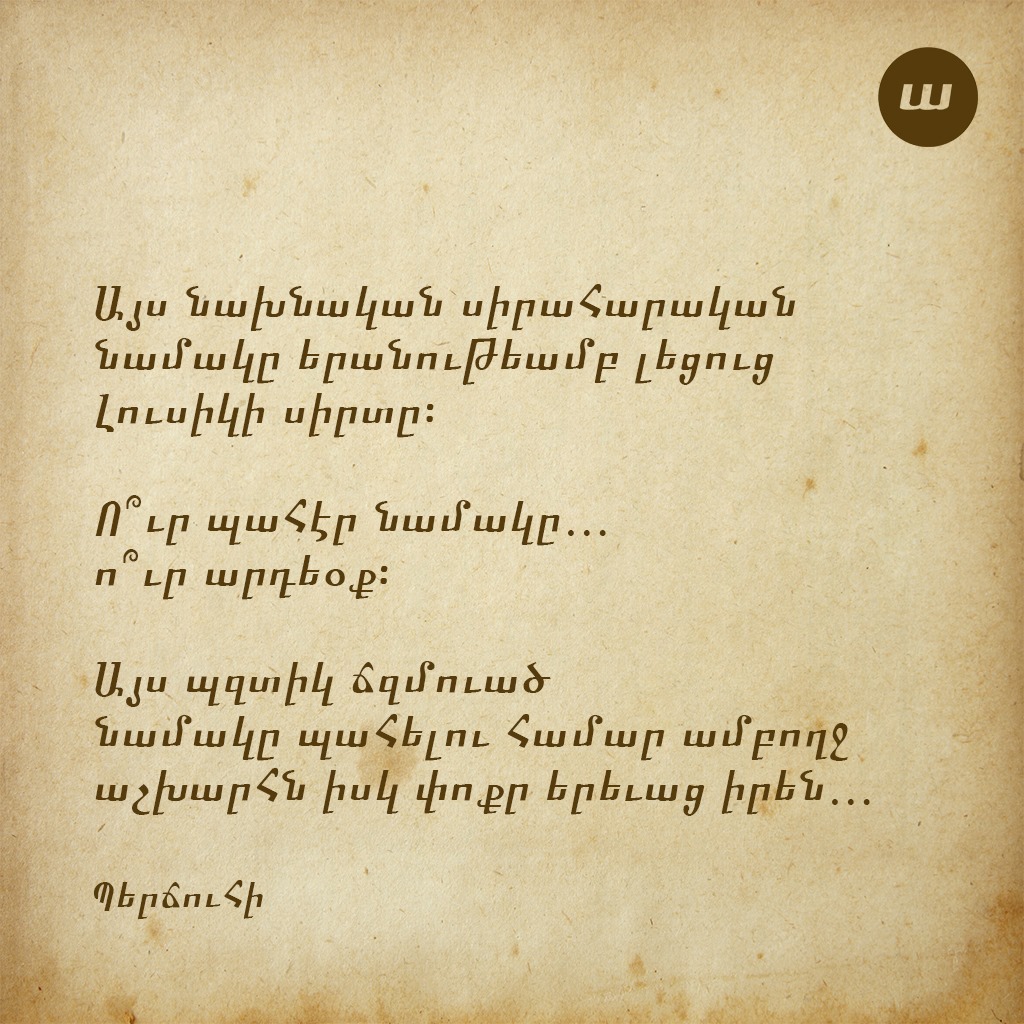 ա
Այս նախնական սիրահարական
նամակը երանութեամբ լեցուց
Լուսիկի սիրտը։
Ո՞ւր պահէր նամակը...
ո՞ւր արդեօք։
Այս պզտիկ ճզմուած
նամակը պահելու համար ամբողջ
աչխարհն իսկ փոքր երեւաց իրեն...
Պերճուհի